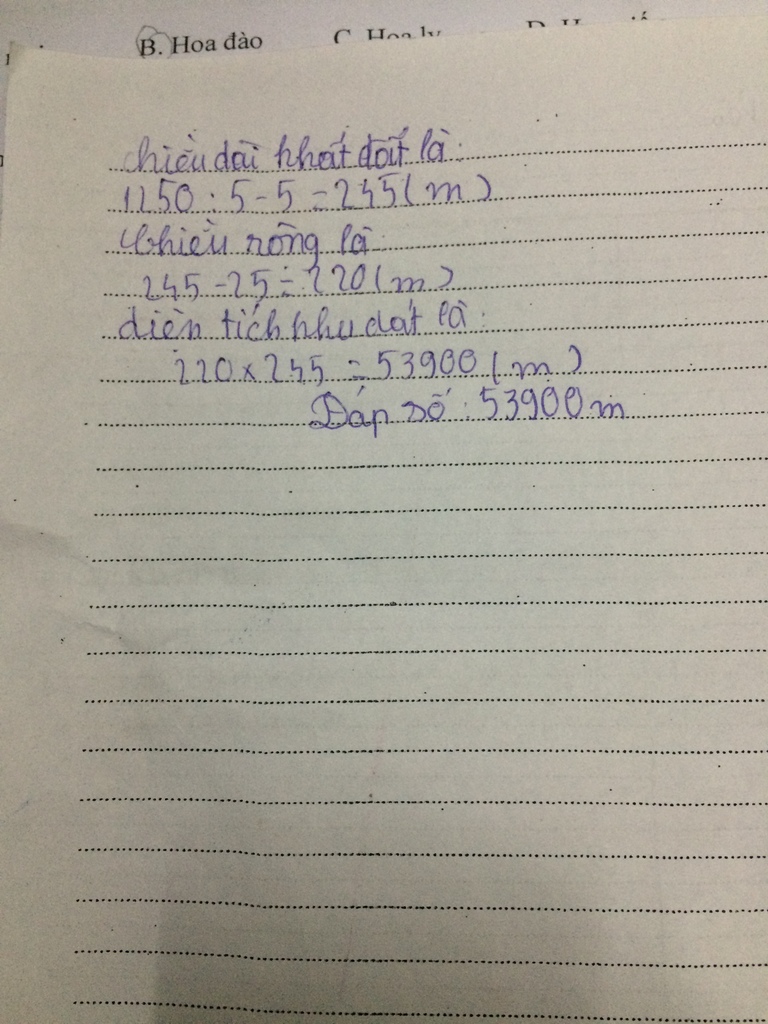 B. Hoa đào C. Hoa ly
chiều dài khất đất là:
1250 : 5 - 5 = 245 (m)
Chiều rộng là:
245 - 25 = 220 (m)
diện tích khu đất là:
220 x 245 = 53900 (m)
Đáp số : 53900 m